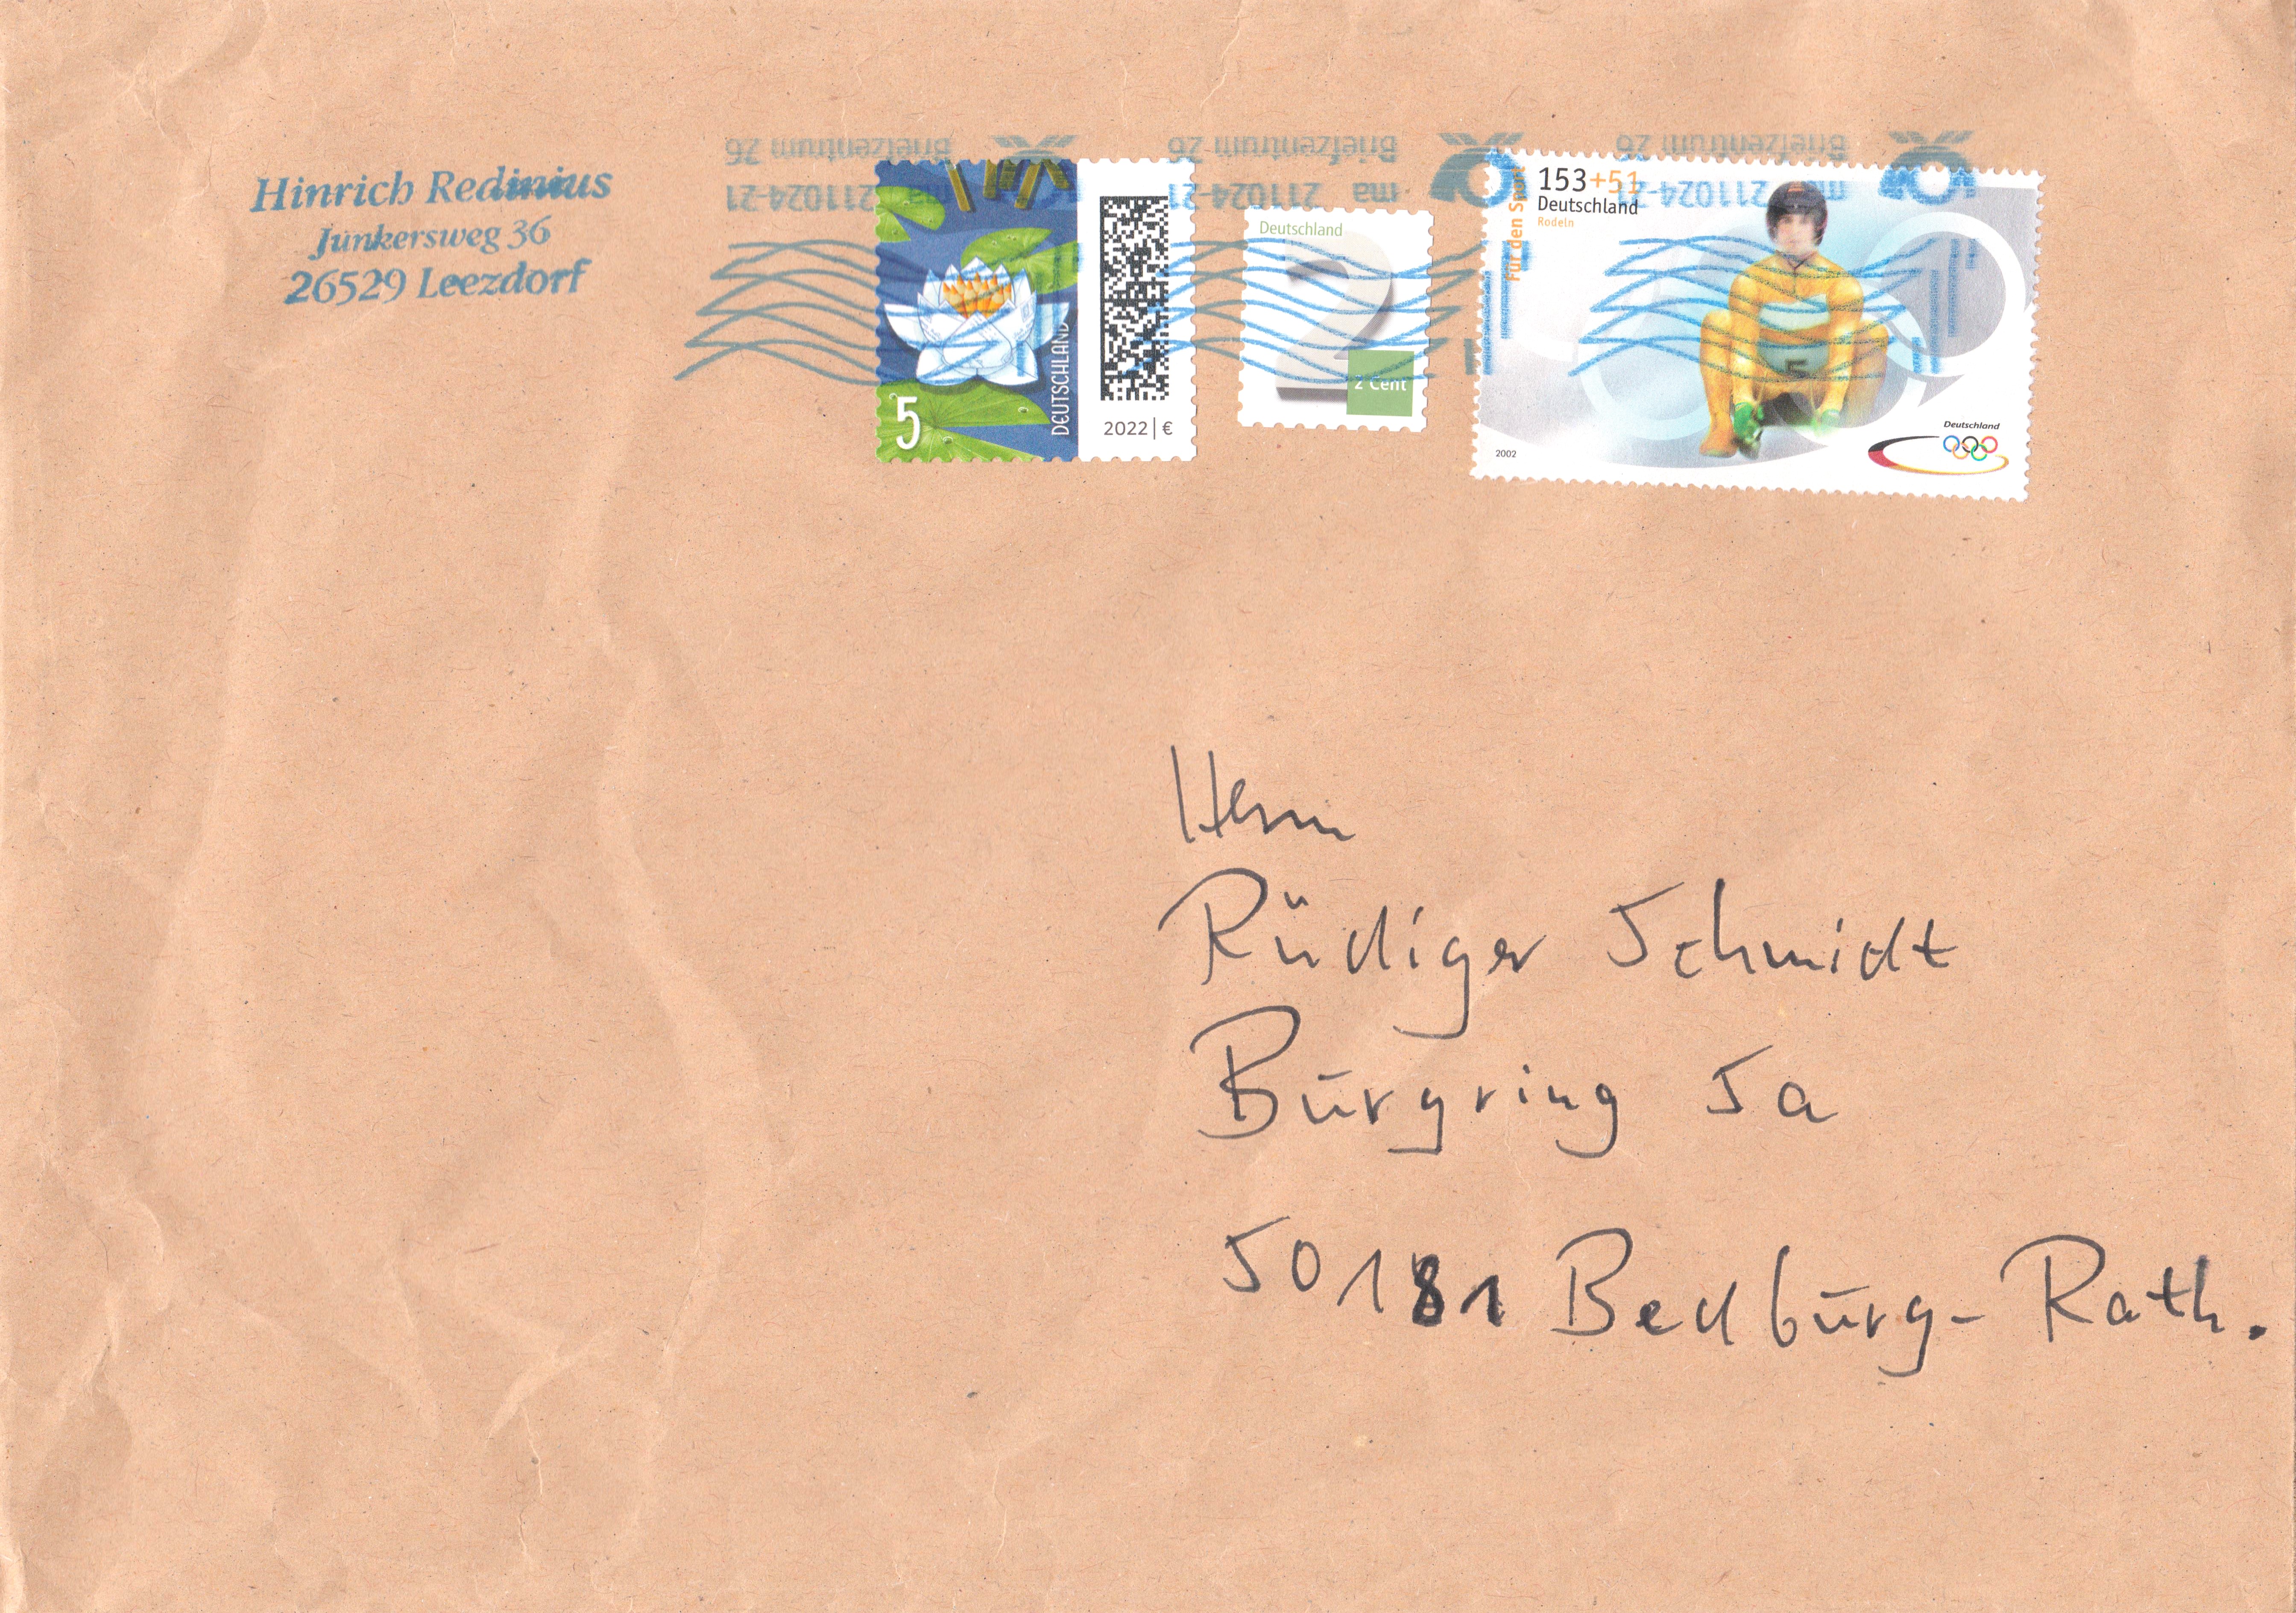 Hinrich Redinius
Junkersweg 36
26529 Leezdorf
Briefzentrum 26
ma 211024-21
Briefzentrum 26
ma 211024-21
Briefzentrum 26
ma 211024-21
5
DEUTSCHLAND
2022 | €
Deutschland
2
2 Cent
Für den Sport
153+51
Deutschland
Rodeln
5
2002
Deutschland
Herrn
Rüdiger Schmidt
Burgring 5a
50181 Bedburg-Rath.